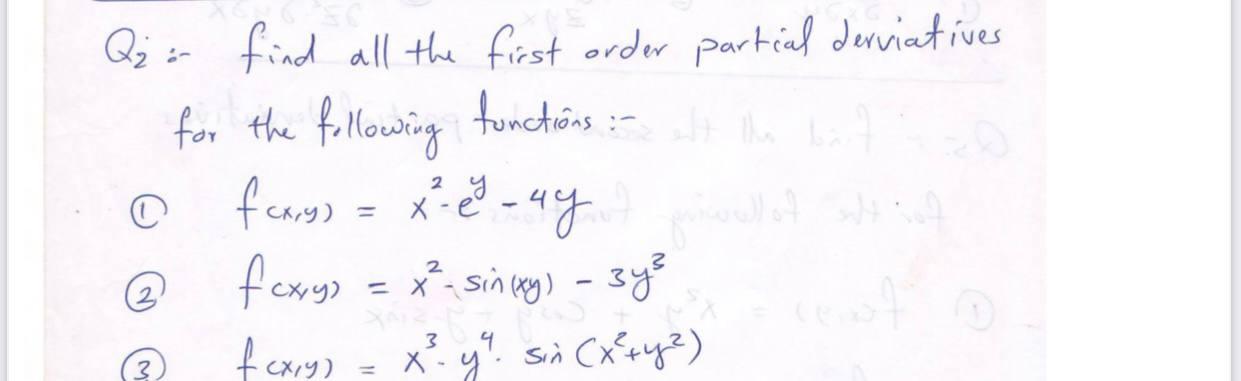 Q2 :- find all the first order partial derviatives
for the following functions :-
① f(x,y) = x²-e^y - 4y
② f(x,y) = x²- sin(xy) - 3y³
③ f(x,y) = x³. y⁴. sin (x²+y²)